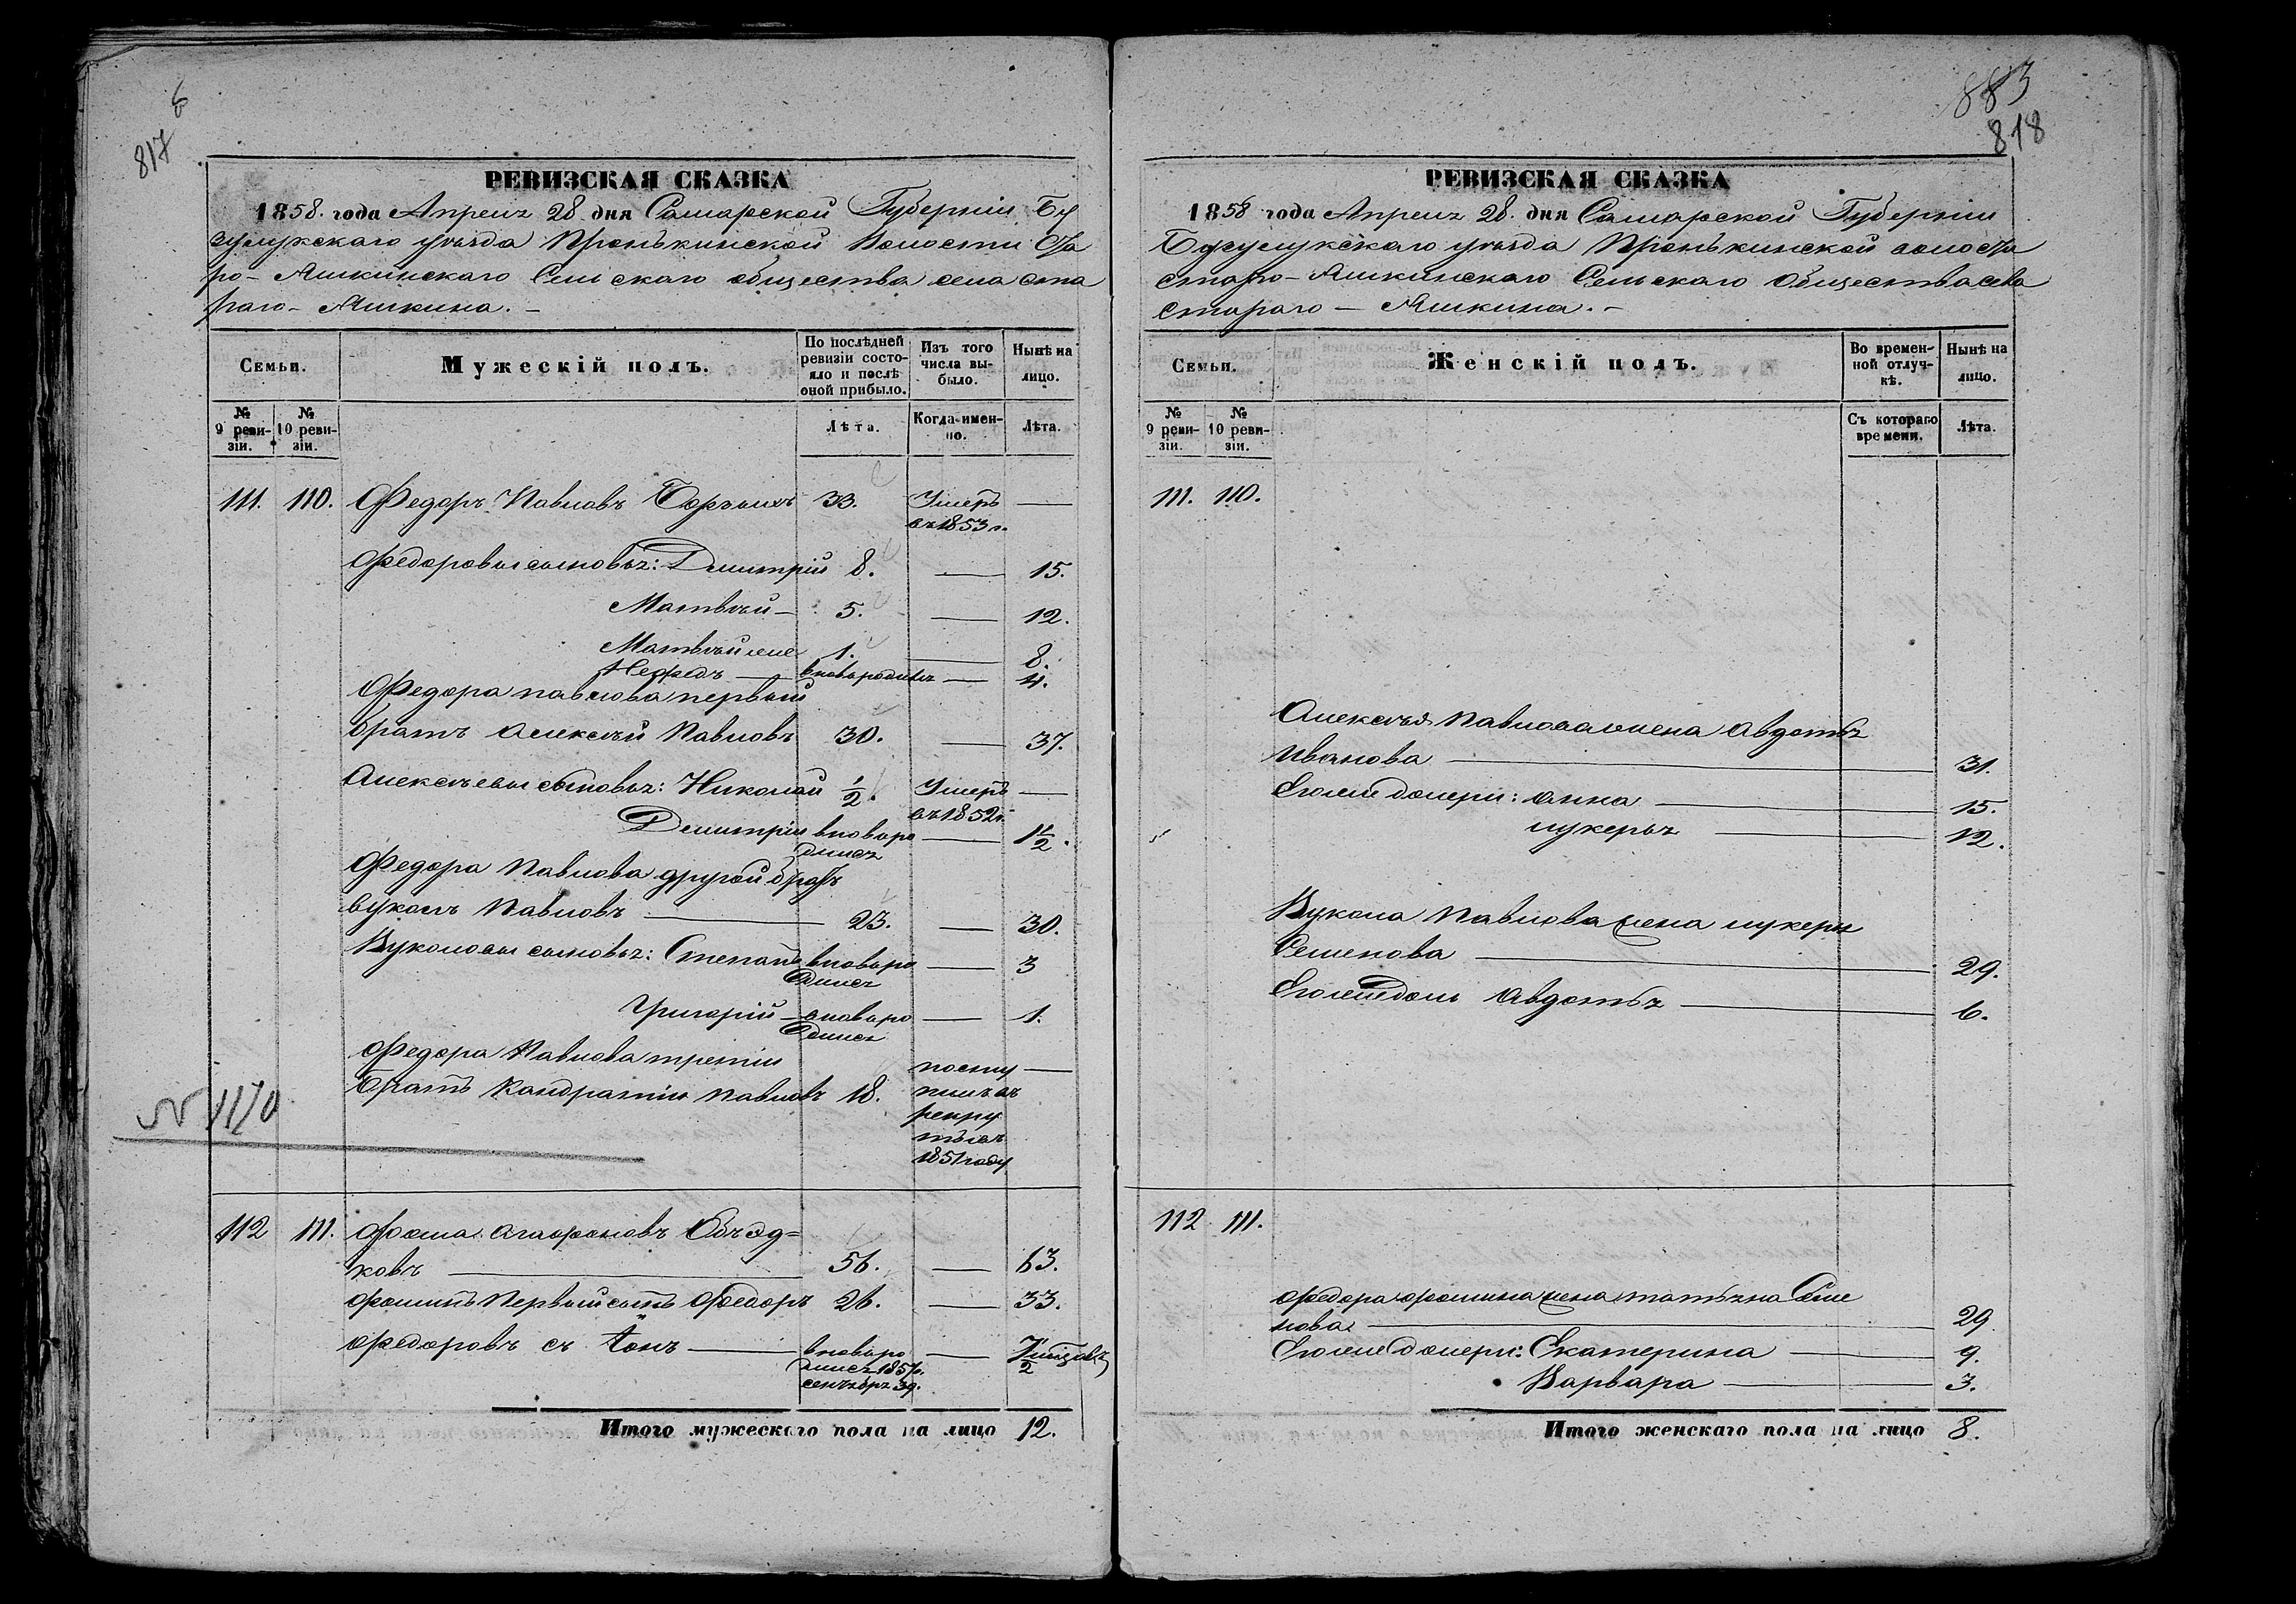 6
817
РЕВИЗСКАЯ СКАЗКА
1858. года Апреля 28 дня Самарской Губерніи Бу
зулукскаго уѣзда Пронькинской Волости Ста
ро-Яшкинскаго Сельскаго общества села Ста
раго-Яшкина.-
Семьи.
Мужескій полъ.
По послѣдней ревизіи состояло и послѣ оной прибыло.
Изъ того числа выбыло.
Нынѣ на лицо.
№ 9 ревизіи.
№ 10 ревизіи.
Лѣта.
Когда именно.
Лѣта.
111. 110. Федоръ Павловъ 33. Умеръ —
въ 1853 г.
Федоровы сыновья: Дмитрій 8. — 15.
Матвѣй — 5. — 12.
Матвѣй же 1. — 8.
Нефедъ — вновь родился — 4.
Федора Павлова первый
братъ Алексѣй Павловъ 30. — 37.
Алексѣевы сыновья: Николай 1/2. Умеръ —
въ 1852 г.
Дмитрій вновь ро — 1 1/2.
дился
Федора Павлова другой братъ
Вуколъ Павловъ — 23. — 30.
Вуколовы сыновья: Степанъ вновь ро — 3
дился
Григорій — вновь ро — 1.
дился
Федора Павлова третій
братъ Кандратій Павловъ 18. посту —
пилъ въ
рекру
ты въ
1851 году
112 111. Фома Агафоновъ Объѣд=
ковъ — 56. — 63.
Фоминъ первый сынъ Федоръ 26. — 33.
Федоровъ съ — вновь ро —
дился 1857 г.
Итого мужескаго пола на лицо 12.
883
818
РЕВИЗСКАЯ СКАЗКА
1858 года Апреля 28. дня Самарской Губерніи
Бузулукскаго уѣзда Пронькинской волости
Старо-Яшкинскаго Сельскаго Общества села
Стараго — Яшкина.-
Семьи.
Женскій полъ.
Во временной отлучкѣ.
Нынѣ на лицо.
№ 9 ревизіи.
№ 10 ревизіи.
Съ котораго времени.
Лѣта.
111. 110.
Алексѣя Павлова жена Авдотья
Иванова — 31.
Его же дочери: Анна — 15.
Лукерья — 12.
Вукола Павлова жена Лукерья
Семенова — 29.
Его же дочь Авдотья — 6.
112 111.
Федора Фомина жена Татьяна Семе
нова — 29
Его же дочери: Екатерина — 9.
Варвара — 3.
Итого женскаго пола на лицо 8.